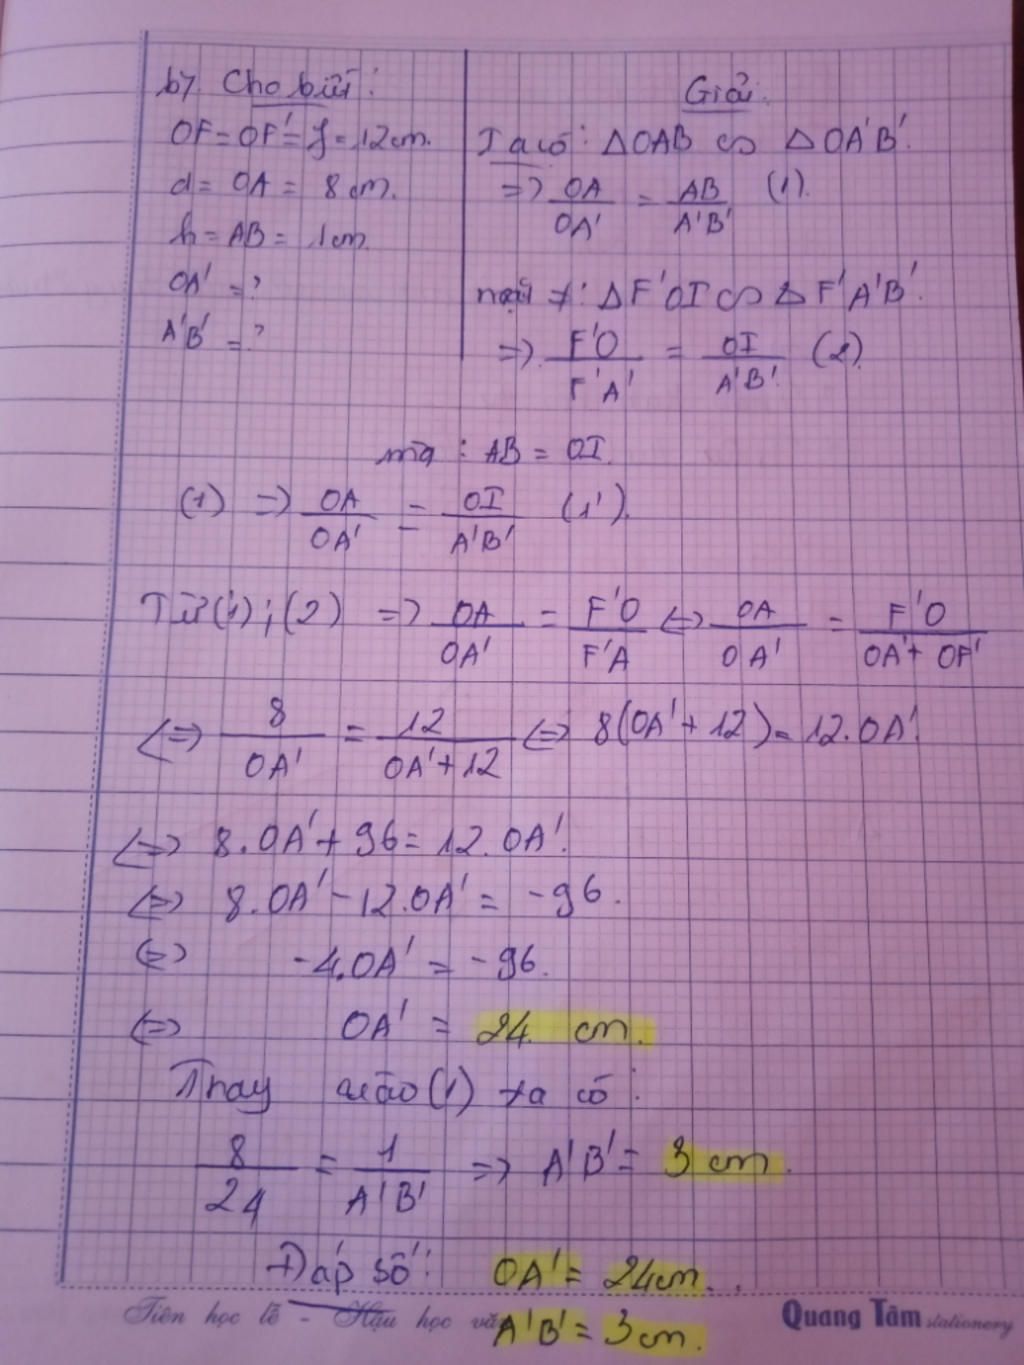 b) Cho biết:
OF = OF' = f = 12 cm.
d = OA = 8 cm.
h = AB = 1 cm.
OA' = ?
A'B' = ?
Giải:
Ta có: ΔOAB ∽ ΔOA'B'.
=> OA/OA' = AB/A'B' (1).
ΔF'OI ∽ ΔF'A'B'.
=> F'O/F'A' = OI/A'B' (2)
mà : AB = OI.
(1) => OA/OA' = OI/A'B' (1').
Từ (1'); (2) => OA/OA' = F'O/F'A <=> OA/OA' = F'O/OA' + OF'
<=> 8/OA' = 12/OA' + 12 <=> 8(OA' + 12) = 12.OA'.
<=> 8.OA' + 96 = 12.OA'.
<=> 8.OA' - 12.OA' = -96.
<=> -4.OA' = -96.
<=> OA' = 24 cm.
Thay vào (1) ta có:
8/24 = 1/A'B' => A'B' = 3 cm.
Đáp số: OA' = 24 cm.
A'B' = 3 cm.
Tiên học lễ - Hậu học văn
Quang Tâm stationery